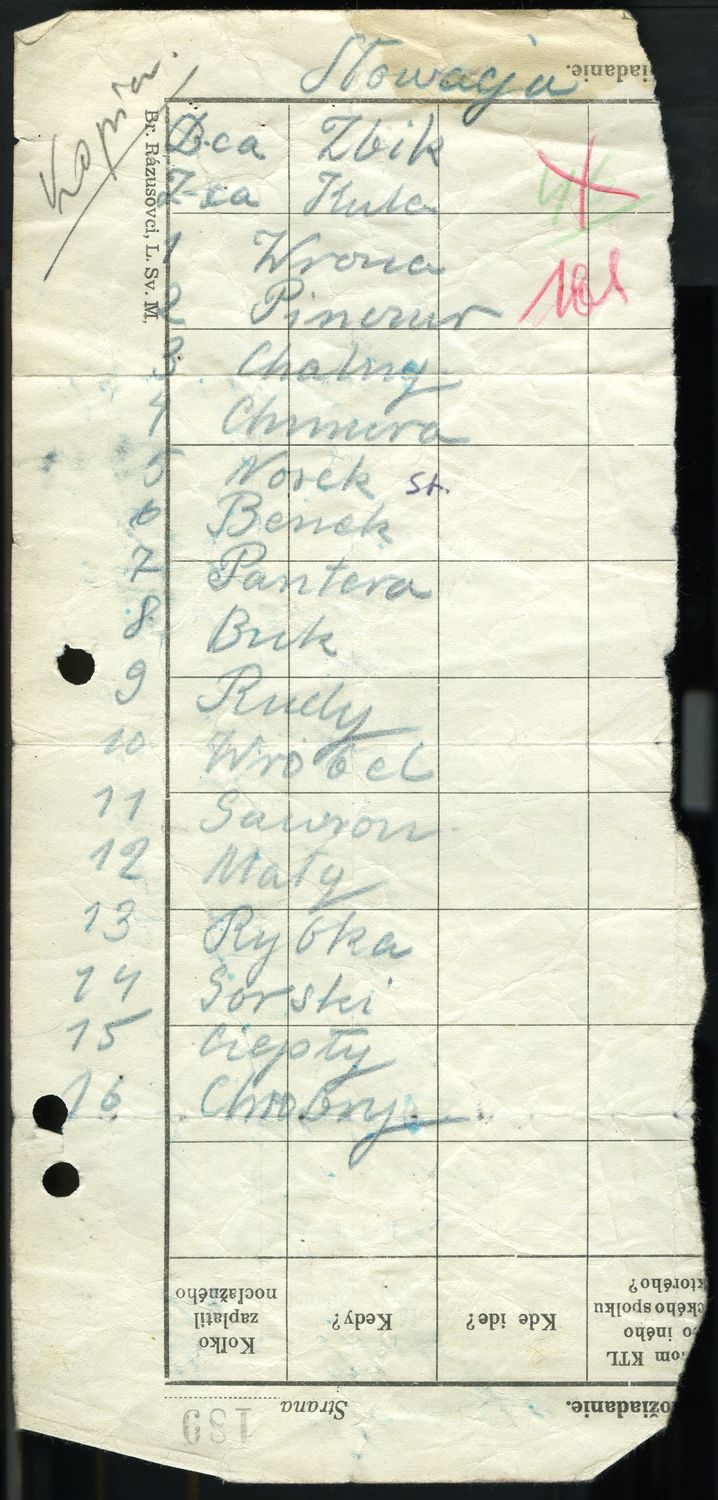 Słowacja
Kopia.
Br. Rázusovci, L. Sv. M.
D-ca Zbik
Z-ca Kula
1 Wrona
2 Pinczur
3 Chatny
4 Chmura
5 Norek St.
6 Benek
7 Pantera
8 Buk
9 Rudy
10 Wróbel
11 Gawron
12 Mały
13 Rybka
14 Gorski
15 Ciepły
16 Chrobry
101
Koľko zaplatil nocľažného
Kedy?
Kde ide?
om KTL
o iného
ckého spolku
ktorého?
Strana
189
ožiadanie.
iadanie.